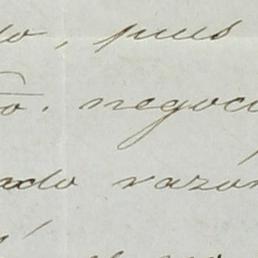 do, pues
o. negoci
ado razón